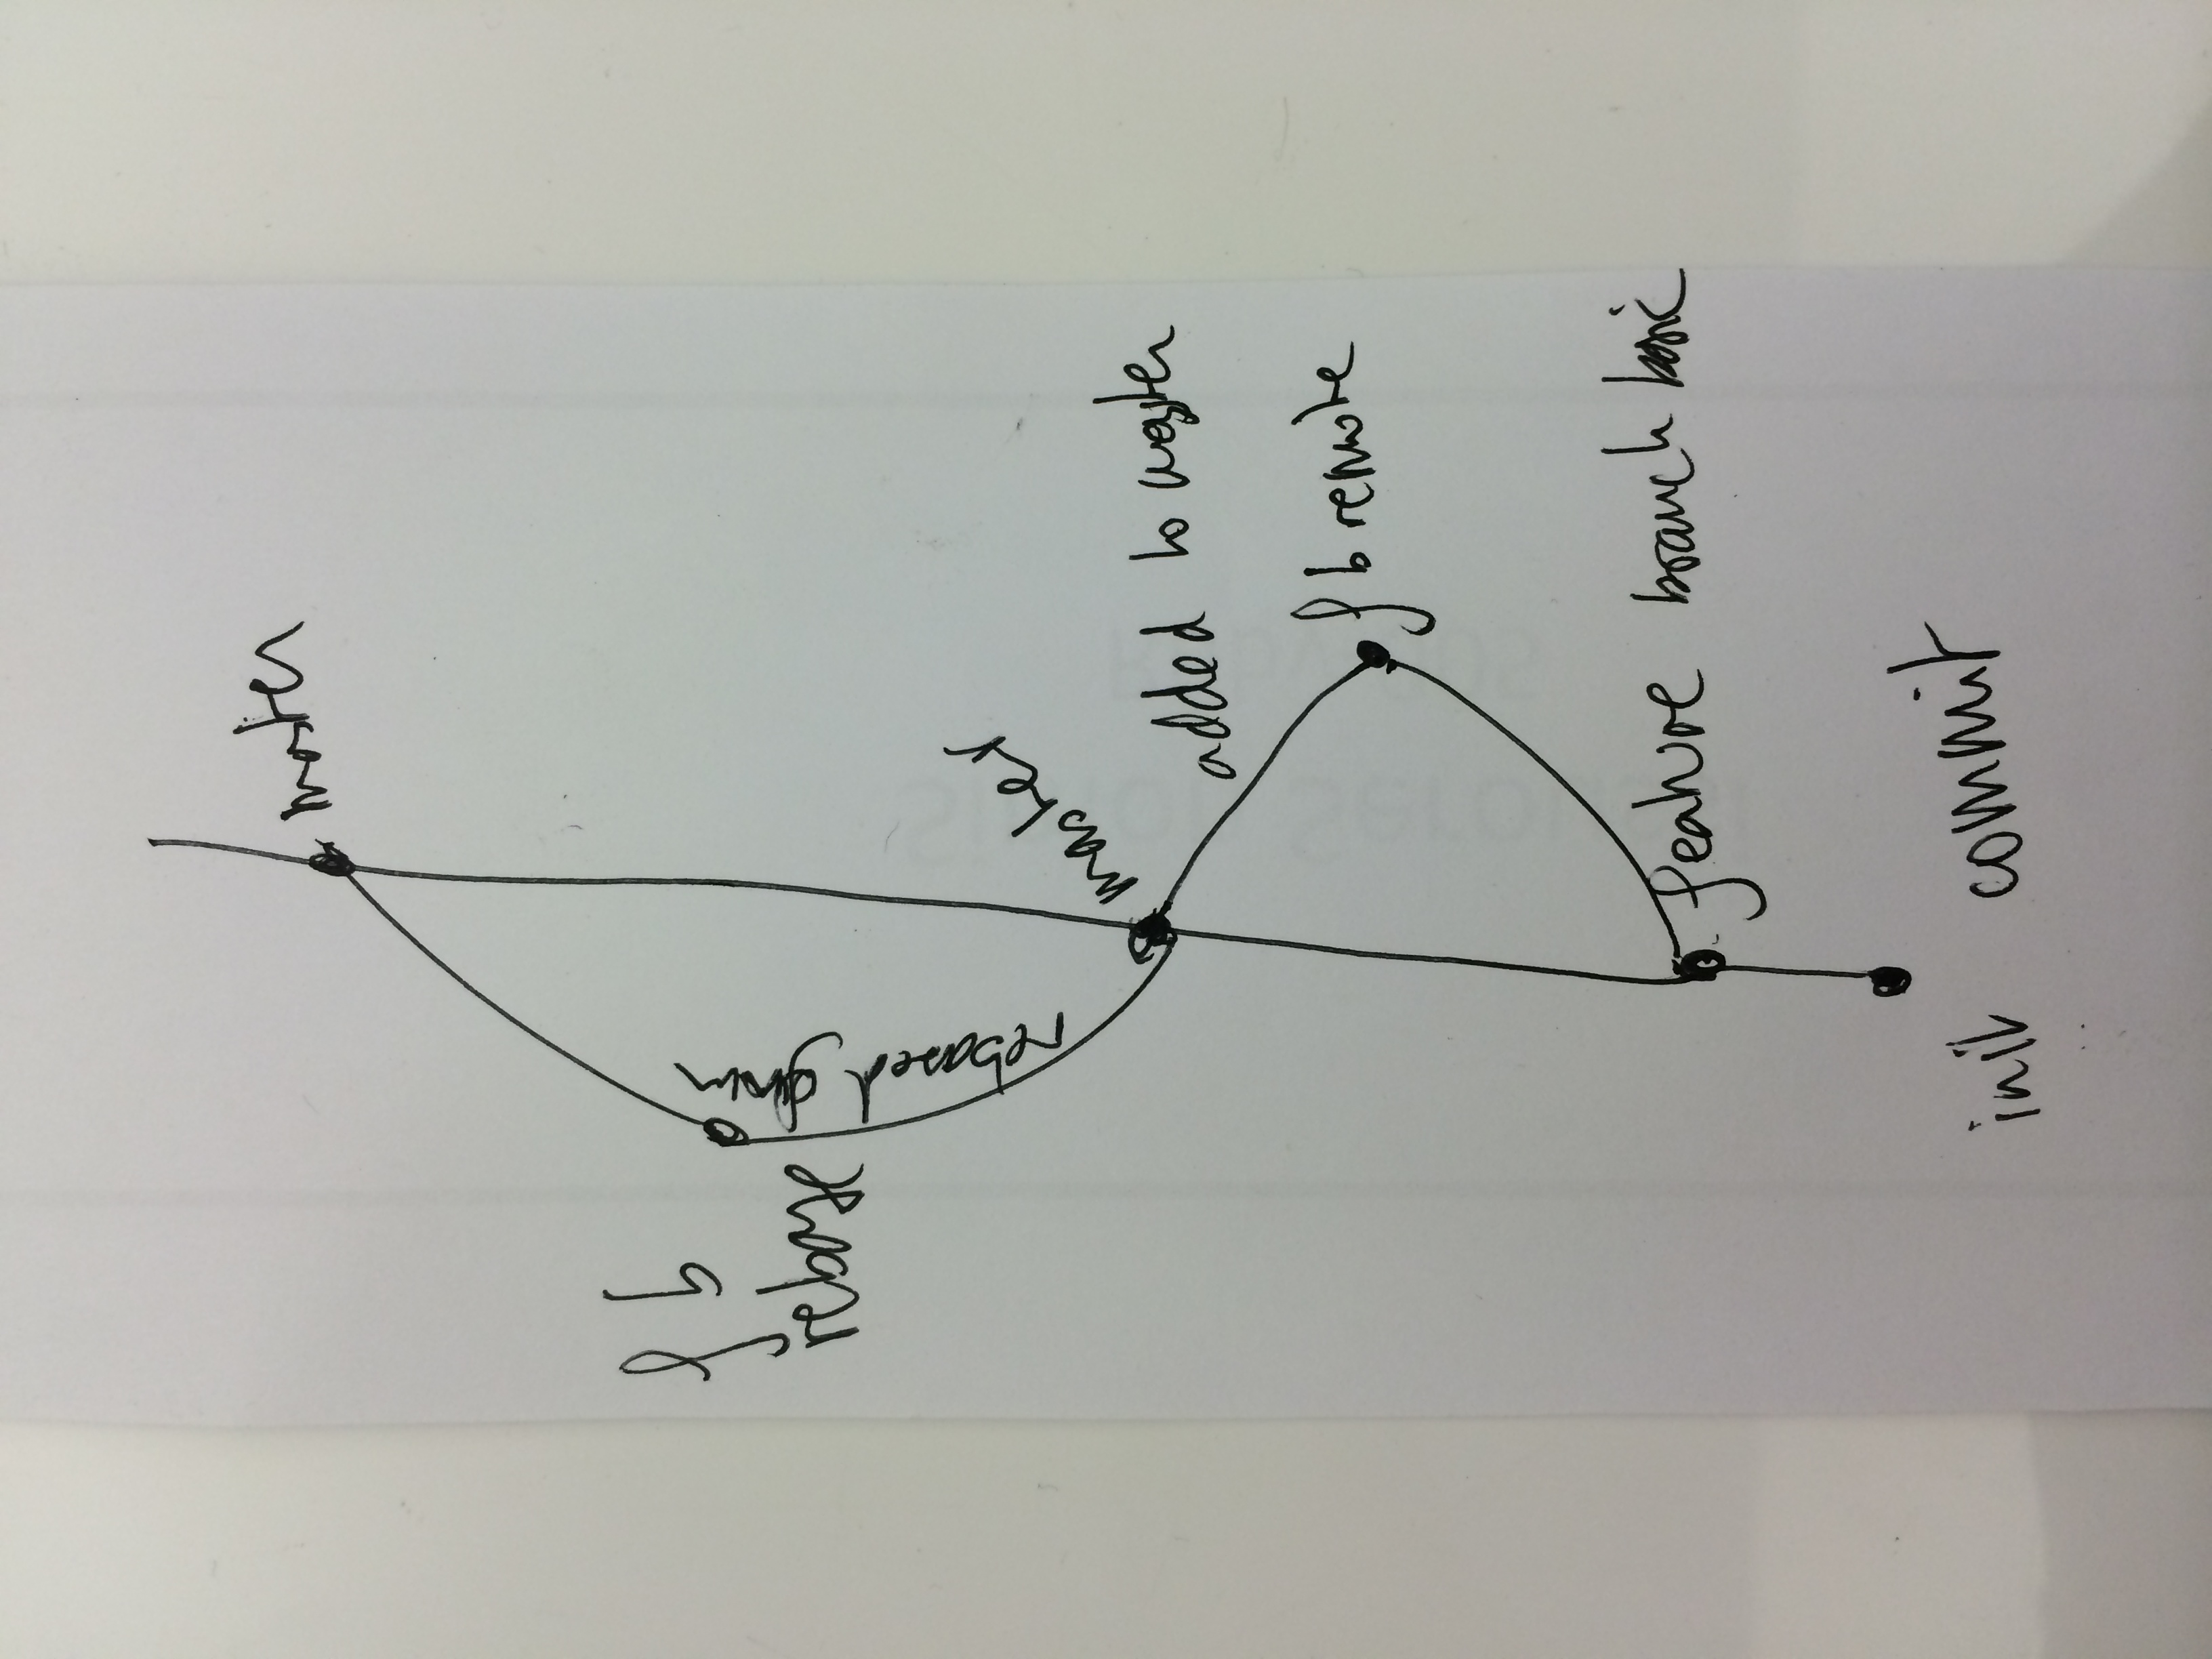 master
f b
rebase
rebased
master
added to master
f b remote
feature branch basic
init commit